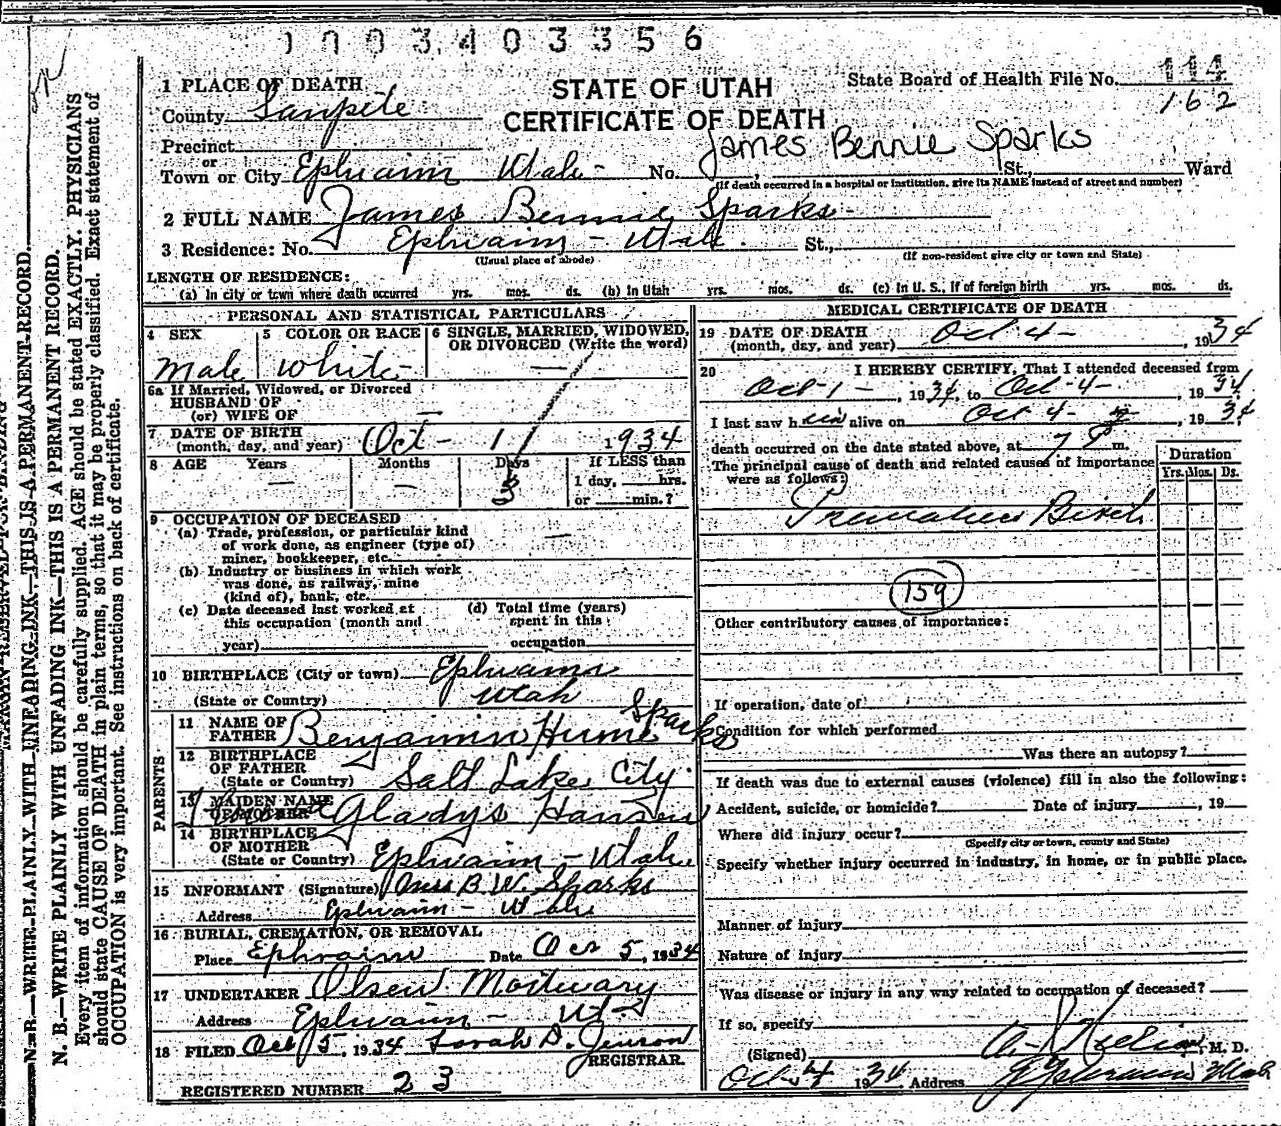 1 7 0 3 4 0 3 3 5 6
1 PLACE OF DEATH
STATE OF UTAH
State Board of Health File No. 114
162
County Sanpete
CERTIFICATE OF DEATH
Precinct
or
James Bennie Sparks
Town or City Ephraim Utah - No. St., Ward
(If death occurred in a hospital or institution, give its NAME instead of street and number)
2 FULL NAME James Bennie Sparks
3 Residence: No. Ephraim - Utah St.,
(Usual place of abode) (If non-resident give city or town and State)
LENGTH OF RESIDENCE:
(a) In city or town where death occurred yrs. mos. ds. (b) In Utah yrs. mos. ds. (c) In U. S., if of foreign birth yrs. mos. ds.
PERSONAL AND STATISTICAL PARTICULARS
4 SEX
Male
5 COLOR OR RACE
White
6 SINGLE, MARRIED, WIDOWED,
OR DIVORCED (Write the word)
—
6a If Married, Widowed, or Divorced
HUSBAND OF
(or) WIFE OF —
7 DATE OF BIRTH
(month, day, and year) Oct - 1 1934
8 AGE Years Months Days If LESS than
— — 3 1 day, hrs.
or min.?
9 OCCUPATION OF DECEASED
(a) Trade, profession, or particular kind
of work done, as engineer (type of)
miner, bookkeeper, etc. —
(b) Industry or business in which work
was done, as railway, mine
(kind of), bank, etc.
(c) Date deceased last worked at
this occupation (month and
year)
(d) Total time (years)
spent in this
occupation
10 BIRTHPLACE (City or town) Ephraim
(State or Country) Utah
PARENTS
11 NAME OF
FATHER Benjamin Hume Sparks
12 BIRTHPLACE
OF FATHER
(State or Country) Salt Lake City
13 MAIDEN NAME
OF MOTHER Gladys Hansen
14 BIRTHPLACE
OF MOTHER
(State or Country) Ephraim - Utah
15 INFORMANT (Signature) Mrs B. W. Sparks
Address Ephraim - Utah
16 BURIAL, CREMATION, OR REMOVAL
Place Ephraim Date Oct 5, 1934
17 UNDERTAKER Olsen Mortuary
Address Ephraim - Ut
18 FILED Oct 5, 1934 Sarah D. Jenson
REGISTRAR.
REGISTERED NUMBER 23
MEDICAL CERTIFICATE OF DEATH
19 DATE OF DEATH
(month, day, and year) Oct 4 - , 1934
20 I HEREBY CERTIFY, That I attended deceased from
Oct - 1 - , 1934, to Oct - 4 - , 1934
I last saw him alive on Oct 4 - , 1934
death occurred on the date stated above, at 7 P m.
The principal cause of death and related causes of importance
were as follows:
Premature Birth
Duration
Yrs. Mos. Ds.
159
Other contributory causes of importance:
If operation, date of
Condition for which performed
Was there an autopsy?
If death was due to external causes (violence) fill in also the following:
Accident, suicide, or homicide? Date of injury , 19
Where did injury occur?
(Specify city or town, county and State)
Specify whether injury occurred in industry, in home, or in public place.
Manner of injury
Nature of injury
Was disease or injury in any way related to occupation of deceased?
If so, specify
(Signed) , M. D.
Oct 4 1934 Address Ephraim Utah
N. B.—WRITE PLAINLY WITH UNFADING INK—THIS IS A PERMANENT RECORD.
N. B.—WRITE PLAINLY WITH UNFADING INK—THIS IS A PERMANENT RECORD.
Every item of information should be carefully supplied. AGE should be stated EXACTLY. PHYSICIANS
should state CAUSE OF DEATH in plain terms, so that it may be properly classified. Exact statement of
OCCUPATION is very important. See instructions on back of certificate.